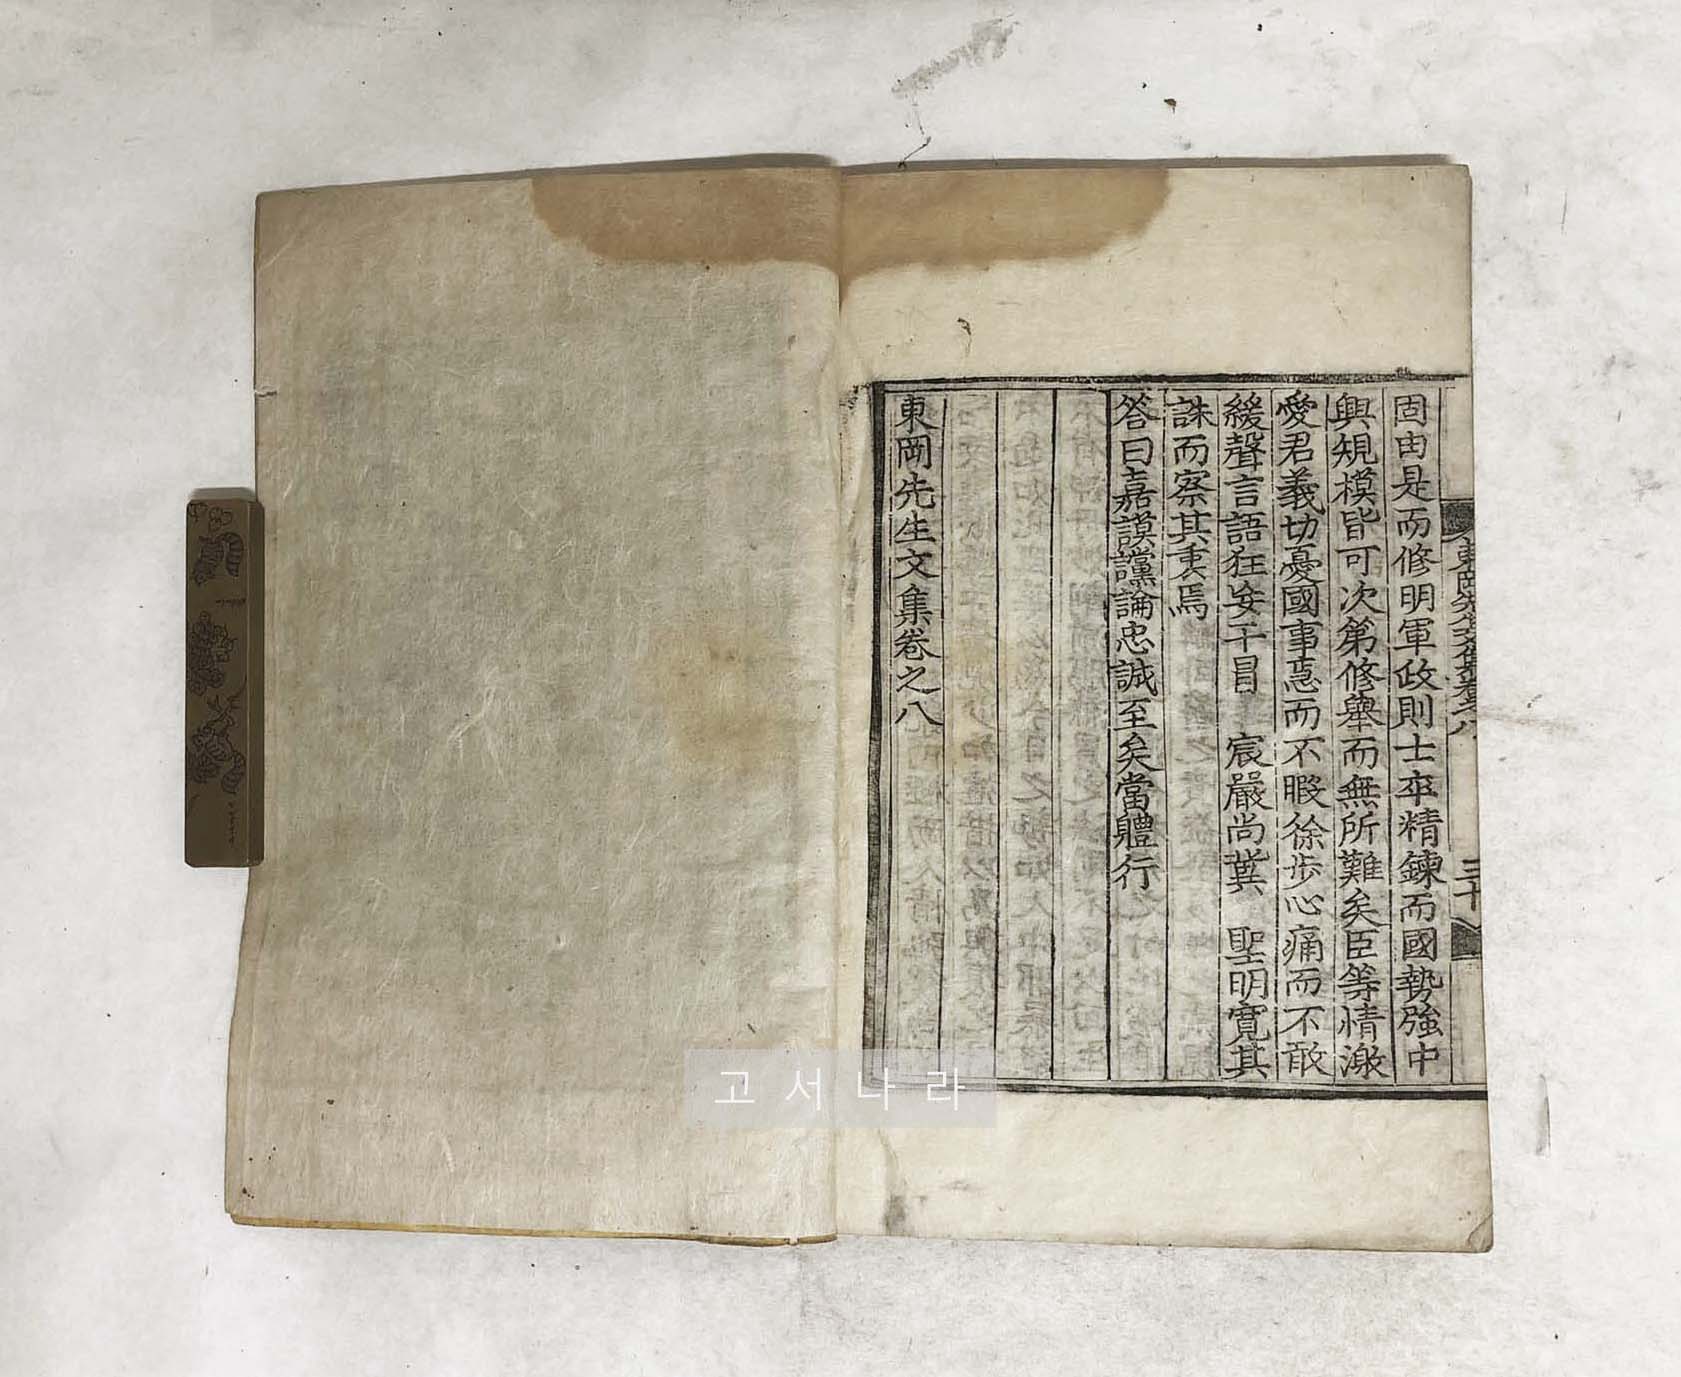 固由是而修明軍政則士卒精鍊而國勢強中
興規模皆可次第修擧而無所難矣臣等情激
愛君義切憂國事急而不暇徐步心痛而不敢
緩聲言語狂妄干冒 宸嚴尚冀 聖明寛其
誅而察其衷焉
答曰嘉謨讜論忠誠至矣當體行
東岡先生文集卷之八
東岡先生文集卷之八
三十
고서나라